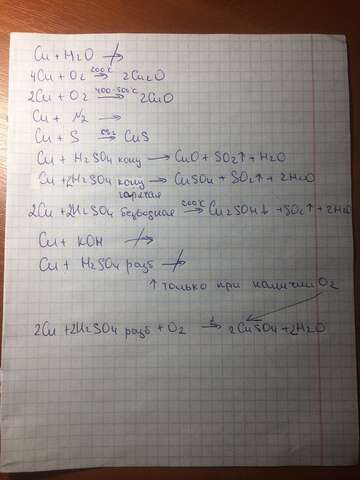 Cu + H2O ↛
4Cu + O2 —200°C→ 2Cu2O
2Cu + O2 —400-500°C→ 2CuO
Cu + N2 →
Cu + S → CuS
Cu + H2SO4 конц → CuO + SO2↑ + H2O
Cu + 2H2SO4 конц горячая → CuSO4 + SO2↑ + 2H2O
2Cu + 2H2SO4 безводная —200°C→ Cu2SO4↓ + SO2↑ + 2H2O
Cu + KOH ↛
Cu + H2SO4 разб ↛
↑ только при наличии O2
2Cu + 2H2SO4 разб + O2 —t→ 2CuSO4 + 2H2O